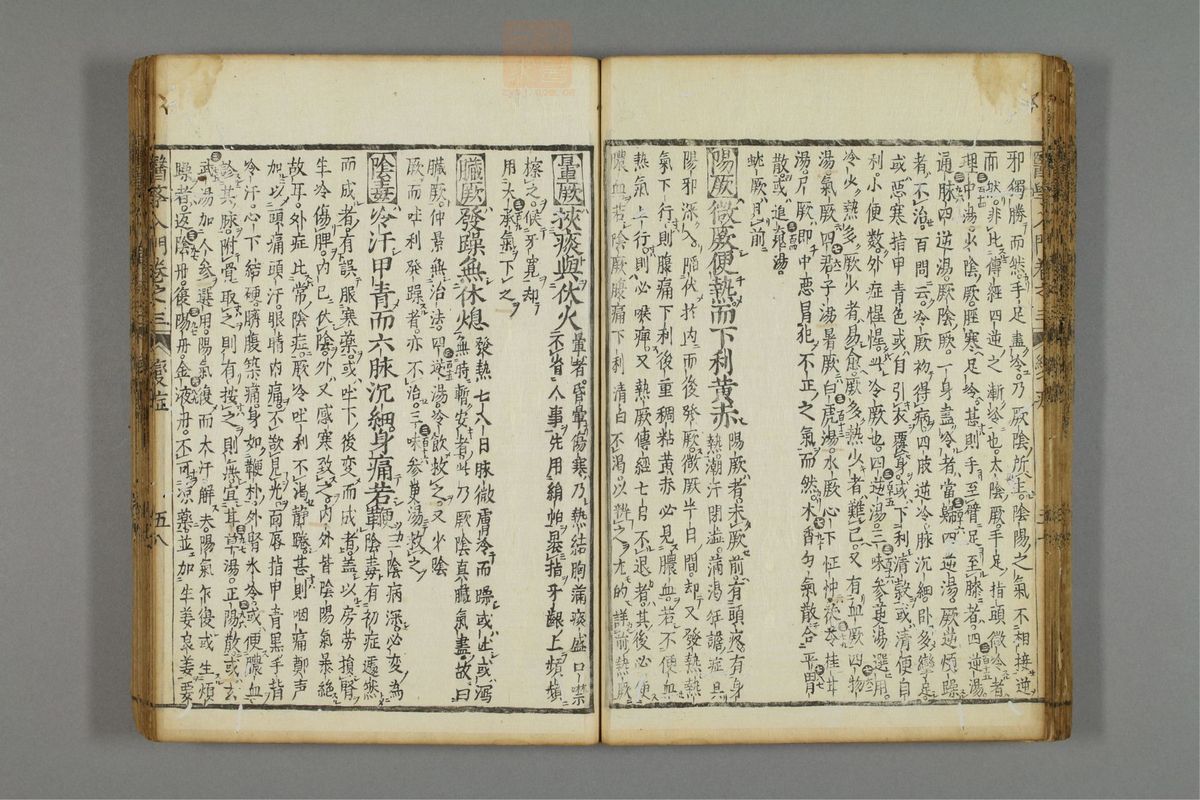 邪獨勝而然手足盡冷乃厥陰所主陰陽之氣不相接逆
而然非比傳經四逆之漸冷也太陰厥手足指頭微冷者
理中湯少陰厥脛寒足冷甚則手至臂足至膝者四逆湯
通脉四逆湯厥陰厥一身盡冷者當歸四逆湯厥逆煩躁
者不治百問云冷厥初得病四肢逆冷脉沉細卧多攣足
或惡寒指甲青色或自引衣覆身或下利清穀或清便自
利小便數外症惺惺此冷厥也四逆湯三味參萸湯選用
冷少熱多厥少者易愈厥多熱少者難已又有血厥四物
湯氣厥四君子湯暑厥白虎湯水厥心下怔忡茯苓桂甘
湯尸厥即中惡冒犯不正之氣而然木香勻氣散合平胃
散或追魂湯
蚘厥見前
陽厥微厥便熱而下利黄赤
陽厥者未厥前有頭疼有身
熱潮汗閉澁滿渴狂譫症具
陽邪深入陷伏於内而後發厥微厥半日間却又發熱熱
氣下行則腹痛下利後重稠粘黄赤必見膿血若不便血
熱氣上行則必喉痺又熱厥傳經七日不退者其後必便
膿血若陰厥腹痛下利清白不渴以辨之尤的詳前熱厥
暈厥挾痰與伏火
暈者昏暈傷寒乃熱結胸痛痰盛口噤
不省人事先用絹帕裹指牙齦上頻頻
擦之候牙寛却
用大承氣下之
臟厥發躁無休熄
發熱七八日脉微膚冷而躁或吐或瀉
無時暫安者此乃厥陰真臟氣盡故曰
臟厥仲景無治法四逆湯冷飲救之又少陰
厥而吐利發躁者亦不治三味參萸湯救之
陰毒冷汗甲青而六脉沉細身痛若鞭
三陰病深必變為
陰毒有初症遽然
而成者有誤服寒藥或吐下後變而成者蓋以房劳損腎
生冷傷脾内已伏陰外又感寒致令内外皆陰陽氣暴絶
故耳外症比常陰症厥冷吐利不渴靜踡甚則咽痛鄭声
加以頭痛頭汗眼睛内痛不欲見光面唇指甲青黒手背
冷汗心下結硬臍腹築痛身如鞭朴外腎氷冷或便膿血
診其脉附骨取之則有按之則無宜甘草湯正陽散或玄
武湯加人参選用陽氣復而大汗解矣陽氣乍復或生煩
躁者返陰丹復陽丹金液丹不可凉藥並加生姜良姜姜
醫學入門卷之三　變症　五八